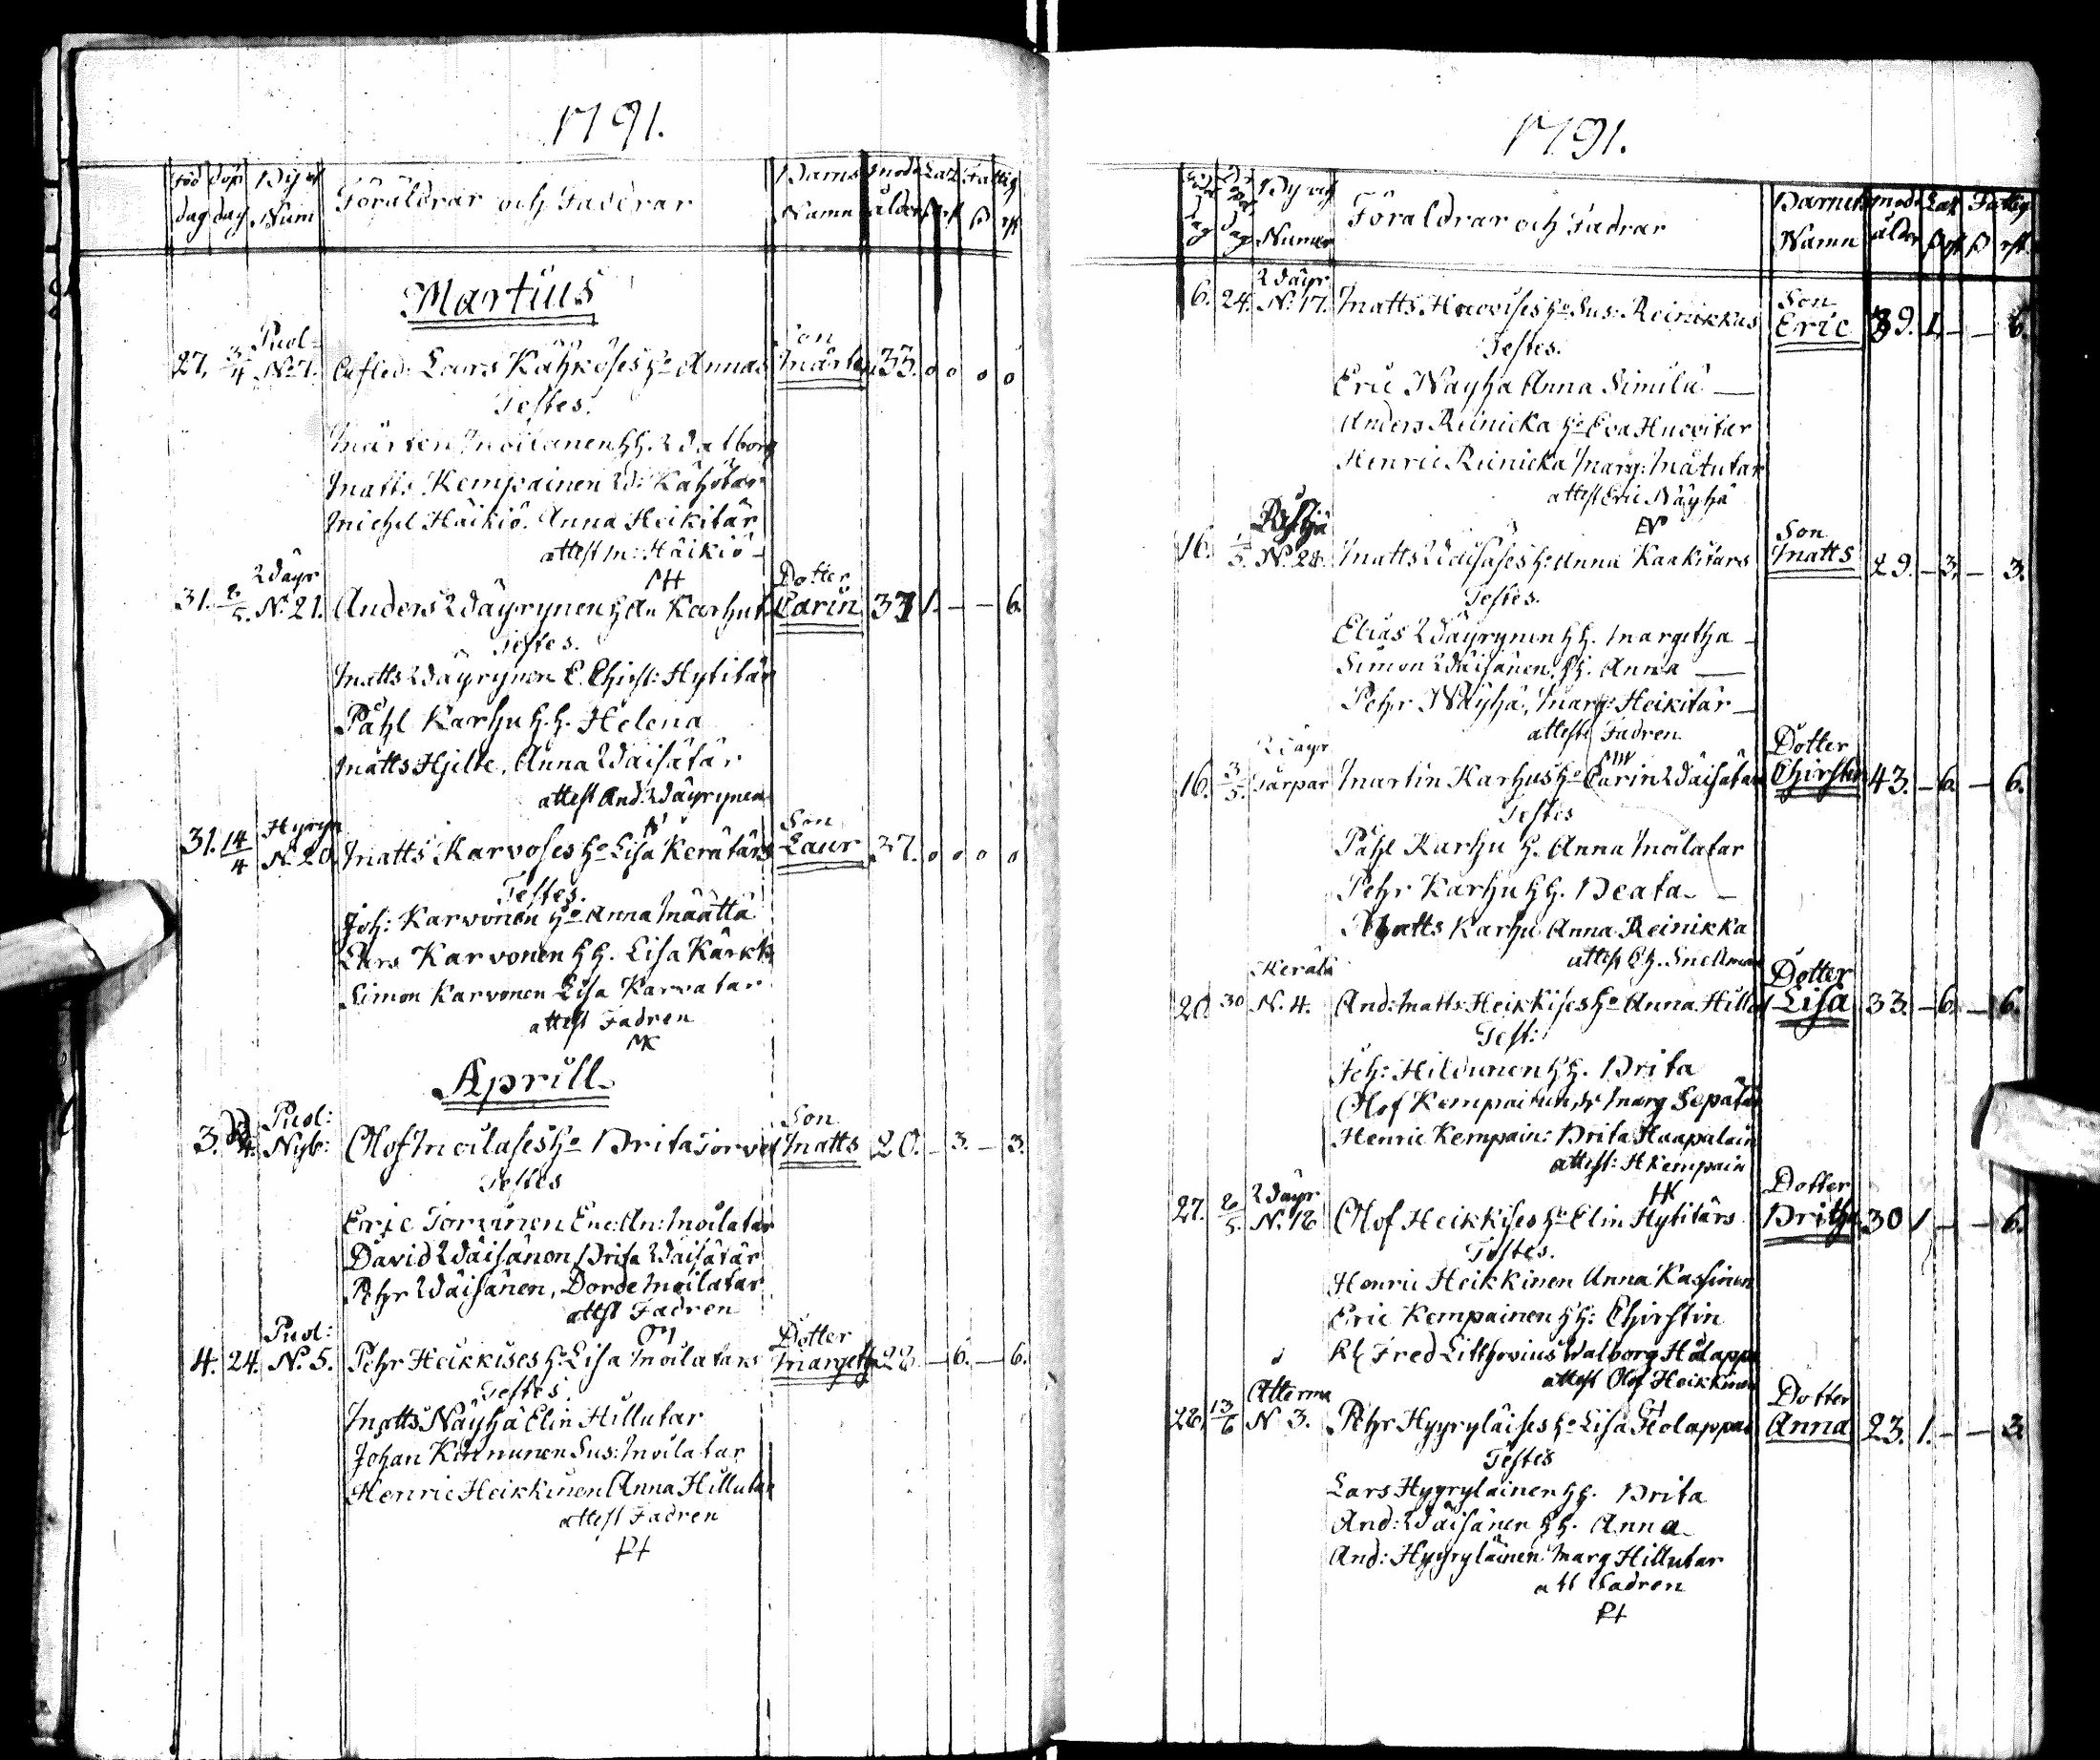 1791.
Föd dag döp dag By och Num Föräldrar och Fadrar Barns Namn moder ålder Laz Fattig
Martius
Puol=
27. 3/4 No 7. Lars Kähköses ho Annas Son Mårten 33. 0 0 0 0
Testes.
Mårten Moilanen hh. Walborg
Matts Kempainen W: Kähötär
Michel Häikiö. Anna Heikitär
attest M: Häikiö
MH
Wäyr
31. 8/5. N. 21. Anders Wäyrynen h An Karhut. Dotter Carin 37 1. – – 6.
Testes.
Matts Wäyrynen E. Chirst: Hytitär
Påhl Karhu h.h. Helena
Matts Hjelte. Anna Wäisätär
attest And: Wäyrynen
Hyryn
31. 14/4 N. 20. Matts Karvoses ho Lisa Kerätärs Son Laur 37. 0 0 0 0
Testes.
Joh: Karvonen ho Anna Määttä
Lars Karvonen hh. Lisa Kärkk
Simon Karvonen Lisa Karvatar
attest Fadren
MK
Aprill
Puol:
3. Nyb: Olof Moilases ho Brita Torvet Son Matts 20. – 3. – 3.
Testes
Eric Torvinen Enc: An: Moilatar
David Wäisänen Brita Wäisätär
Pehr Wäisänen, Borde Moilatar
attest Fadren
OM
Puol:
4. 24. N. 5. Pehr Heikkises h: Lisa Moilatars Dotter Margeth 28. – 6. – 6.
Testes.
Matts Näyhä Elin Hillutar
Johan Kinnunen Sus: Moilatar
Henric Heikkinen Anna Hillutar
attest Fadren
PH
1791.
By och Numer Föraldrar och Fadrar Barnets Namn moder ålder Laz Fattig
Wäyr
6. 24. N. 17. Matts Huovises ho Sus: Reinikkus Son Eric 39. 1. – – 6.
Testes.
Eric Näyhä Anna Similä —
Anders Reinicka ho Eva Huovitar
Henric Reinicka Marg: Mätutar
attest Eric Näyhä
EN
16. 1/5. N. 28. Matts Wäisäses h: Anna Kaakitars Son Matts 29. – 3. – 3.
Testes.
Elias Wäyrynen hh. Margetha –
Simon Wäisänen. hh. Anna —
Pehr Näyhä, Marg: Heikitär —
atteste Fadren
MW
Wäyr
16. 3/5. Torpar Martin Karhus ho Carin Wäisätär Dotter Chirstin 43. – 6. – 6.
Testes
Påhl Karhu h. Anna Moilatar
Pehr Karhu hh. Beata –
Matts Karhu Anna Reinikka
attest Ch. Snellman
Kerälä
20. 30 N. 4. And: Matts: Heikkises ho Anna Hillut Dotter Lisa 33. – 6. – 6.
Test:
Joh: Hildunen hh. Brita
Olof Kempainen, h Marg Sepatar
Henric Kempain: Brita Haapalain
attest: H Kempain
HK
Wäyr
27. 8/5. N. 18 Olof Heikkises ho Elin Hytitärs Dotter Britha 30 1 – – 6.
Testes.
Henric Heikkinen Anna Kassinen
Eric Kempainen hh: Chirstin
Kl Fred Litthovius Walborg Holappa
attest Olof Heikkinen
OH
Alterma
28. 13/6 N 3. Pehr Hyyryläises ho Lisa Holappas Dotter Anna 23. 1. – – 3.
Testes
Lars Hyyryläinen hh. Brita
And: Wäisänen hh. Anna
And: Hyyryläinen Marg Hillutar
att Fadren
PH